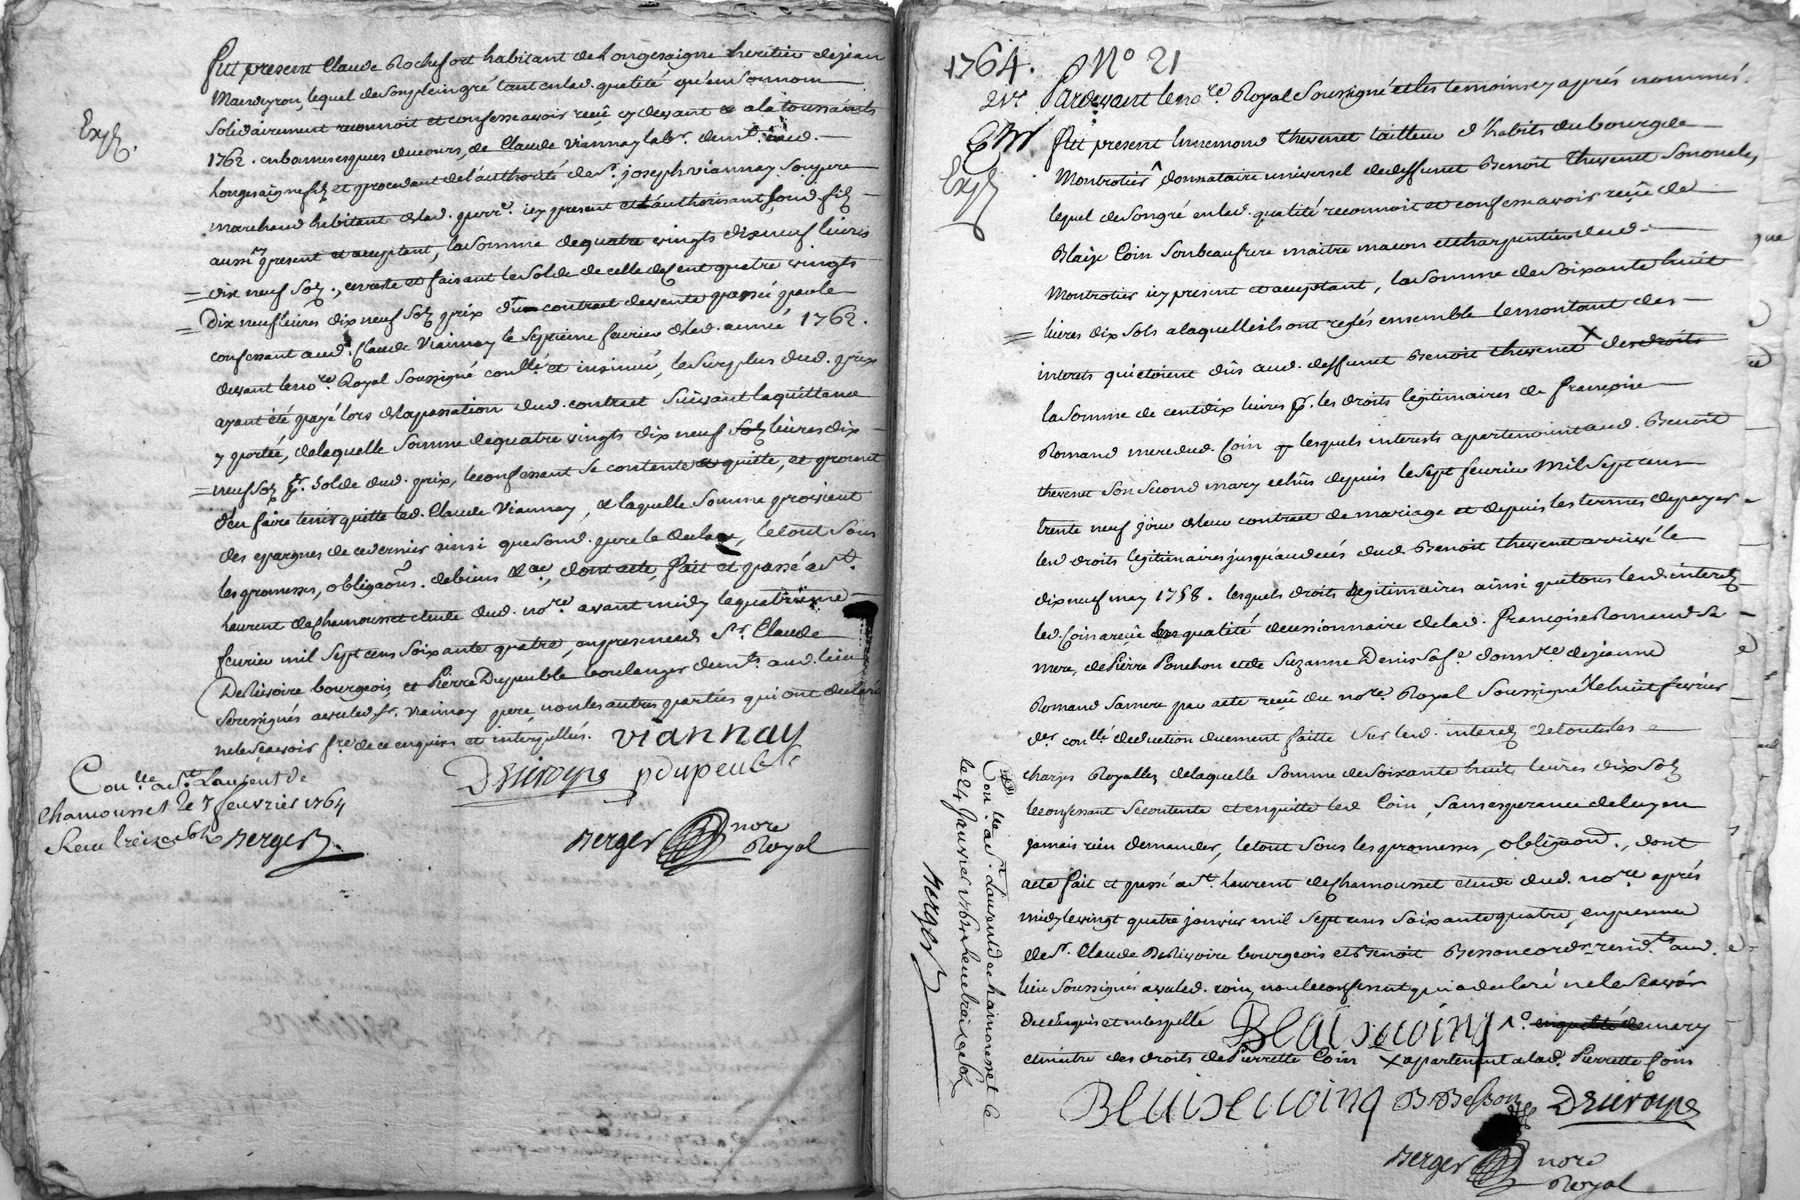 fut present Claude Rochefort habitant de Longessaigne heritier de jean
lequel de son plein gré tant en lad. qualité qu'en son nom
solidairement reconnoit et confesse avoir reçû cy devant a la toussaints
1762. en bonnes especes du cours, de Claude Viannay labr. demt. aud.
Longessaigne fils et procedant de l'authorité de Sr. joseph viannay son pere
marchand habitant de lad. parr. icy present et l'authorisant sond. fils
aussi present et acceptant, la somme de quatre vingts dix neuf livres
dix neuf sols, en reste et faisant le solde de celle de cent quatre vingts
Dix neuf livres dix neuf sols prix du contract de vente passé par le
confessant aud. Claude Viannay le septieme fevrier de lad. année 1762.
devant le nore. Royal soussigné conllé. et insinué, le surplus dud. prix
ayant été payé lors de la passation dud. contract suivant la quittance
y portée, de laquelle somme de quatre vingts dix neuf livres dix
neuf sols pr. solde dud. prix, le confessant se contente et quitte, et promet
d'en faire tenir quitte led. Claude Viannay, de laquelle somme provient
des epargnes de ce dernier ainsi que sond. pere le declare, le tout sous
les promesses, obligaons. de biens &ae., dont acte, fait et passé a St.
Laurent de Chamousset etude dud. nore. avant midy le quatrieme
fevrier mil sept cens soixante quatre, en presence de Sr. Claude
Derivoire bourgeois et Pierre Dupeuble boulanger demts. aud. lieu
soussignés avec led. Sr. Viannay pere, non les autres parties qui ont declaré
ne le sçavoir fre. de ce enquises et interpellés. viannay
Derivoyre pdupeuble
Berger nore
Royal
Exp.
Conlle. a St. Laurent de
chamousset le 7 fevrier 1764
Reçu treize sols Berger
1764. No 21
Pardevant le nore. Royal soussigné et les temoins cy après nommés.
fut present Ennemond Thevenet tailleur d'habits du bourg de
Montrotier donnataire universel de deffunt Benoit Thevenet son oncle,
lequel de son gré en lad. qualité reconnoit et confesse avoir reçû de
Blaise Coin son beau frere maitre macon et charpentier dud.
Montrotier icy present et acceptant, la somme de soixante huit
livres dix sols a laquelle ils ont reglés ensemble le montant des
interets qui etoient dûs aud. deffunt Benoit thevenet X des droits
la somme de cent dix livres pr. les droits legitimaires de françoise
Romand mere dud. Coin lesquels interests apartenoient aud. Benoit
thevenet son second mary echûs depuis le sept fevrier mil sept cens
trente neuf jour de leur contract de mariage et depuis les termes de payer
led. droits legitimaires jusqu'au decés dud. Benoit thevenet arrivé le
dix neuf may 1758. lesquels droits legitimaires ainsi que tous led. interets
led. Coin a reçû en qualité de cessionnaire de lad. françoise Romand sa
mere, de Pierre Ponchon et de Suzanne Denis sa fe. donnre. de jeanne
Romand sa mere par acte reçû du nore. Royal soussigné le huit fevrier
der. conllé. deduction duement faitte sur led. interets de toutes les
charges Royalles de laquelle somme de soixante huit livres dix sols
le confessant se contente et en quitte led. Coin, sans esperance de luy en
jamais rien demander, le tout sous les promesses, obligaons., dont
acte fait et passé a St. Laurent de Chamousset etude dud. nore. après
midy le vingt quatre janvier mil sept cens soixante quatre, en presence
de Sr. Claude Derivoire bourgeois et Benoit Besson cordr. residts. aud.
lieu soussignés avec led. coin, non le confessant qui a declaré ne le sçavoir
de ce enquis et interpellé Blaise coing en qualité de mary
et maitre des droits de Pierrette Coin X apartenant a lad. Pierrette Coin
Blaise coing B Besson Derivoyre
Berger nore
Royal
Exp.
Conlle. a St. Laurent de chamousset le
le 24 janvier 1764 Reçu treize sols
Berger